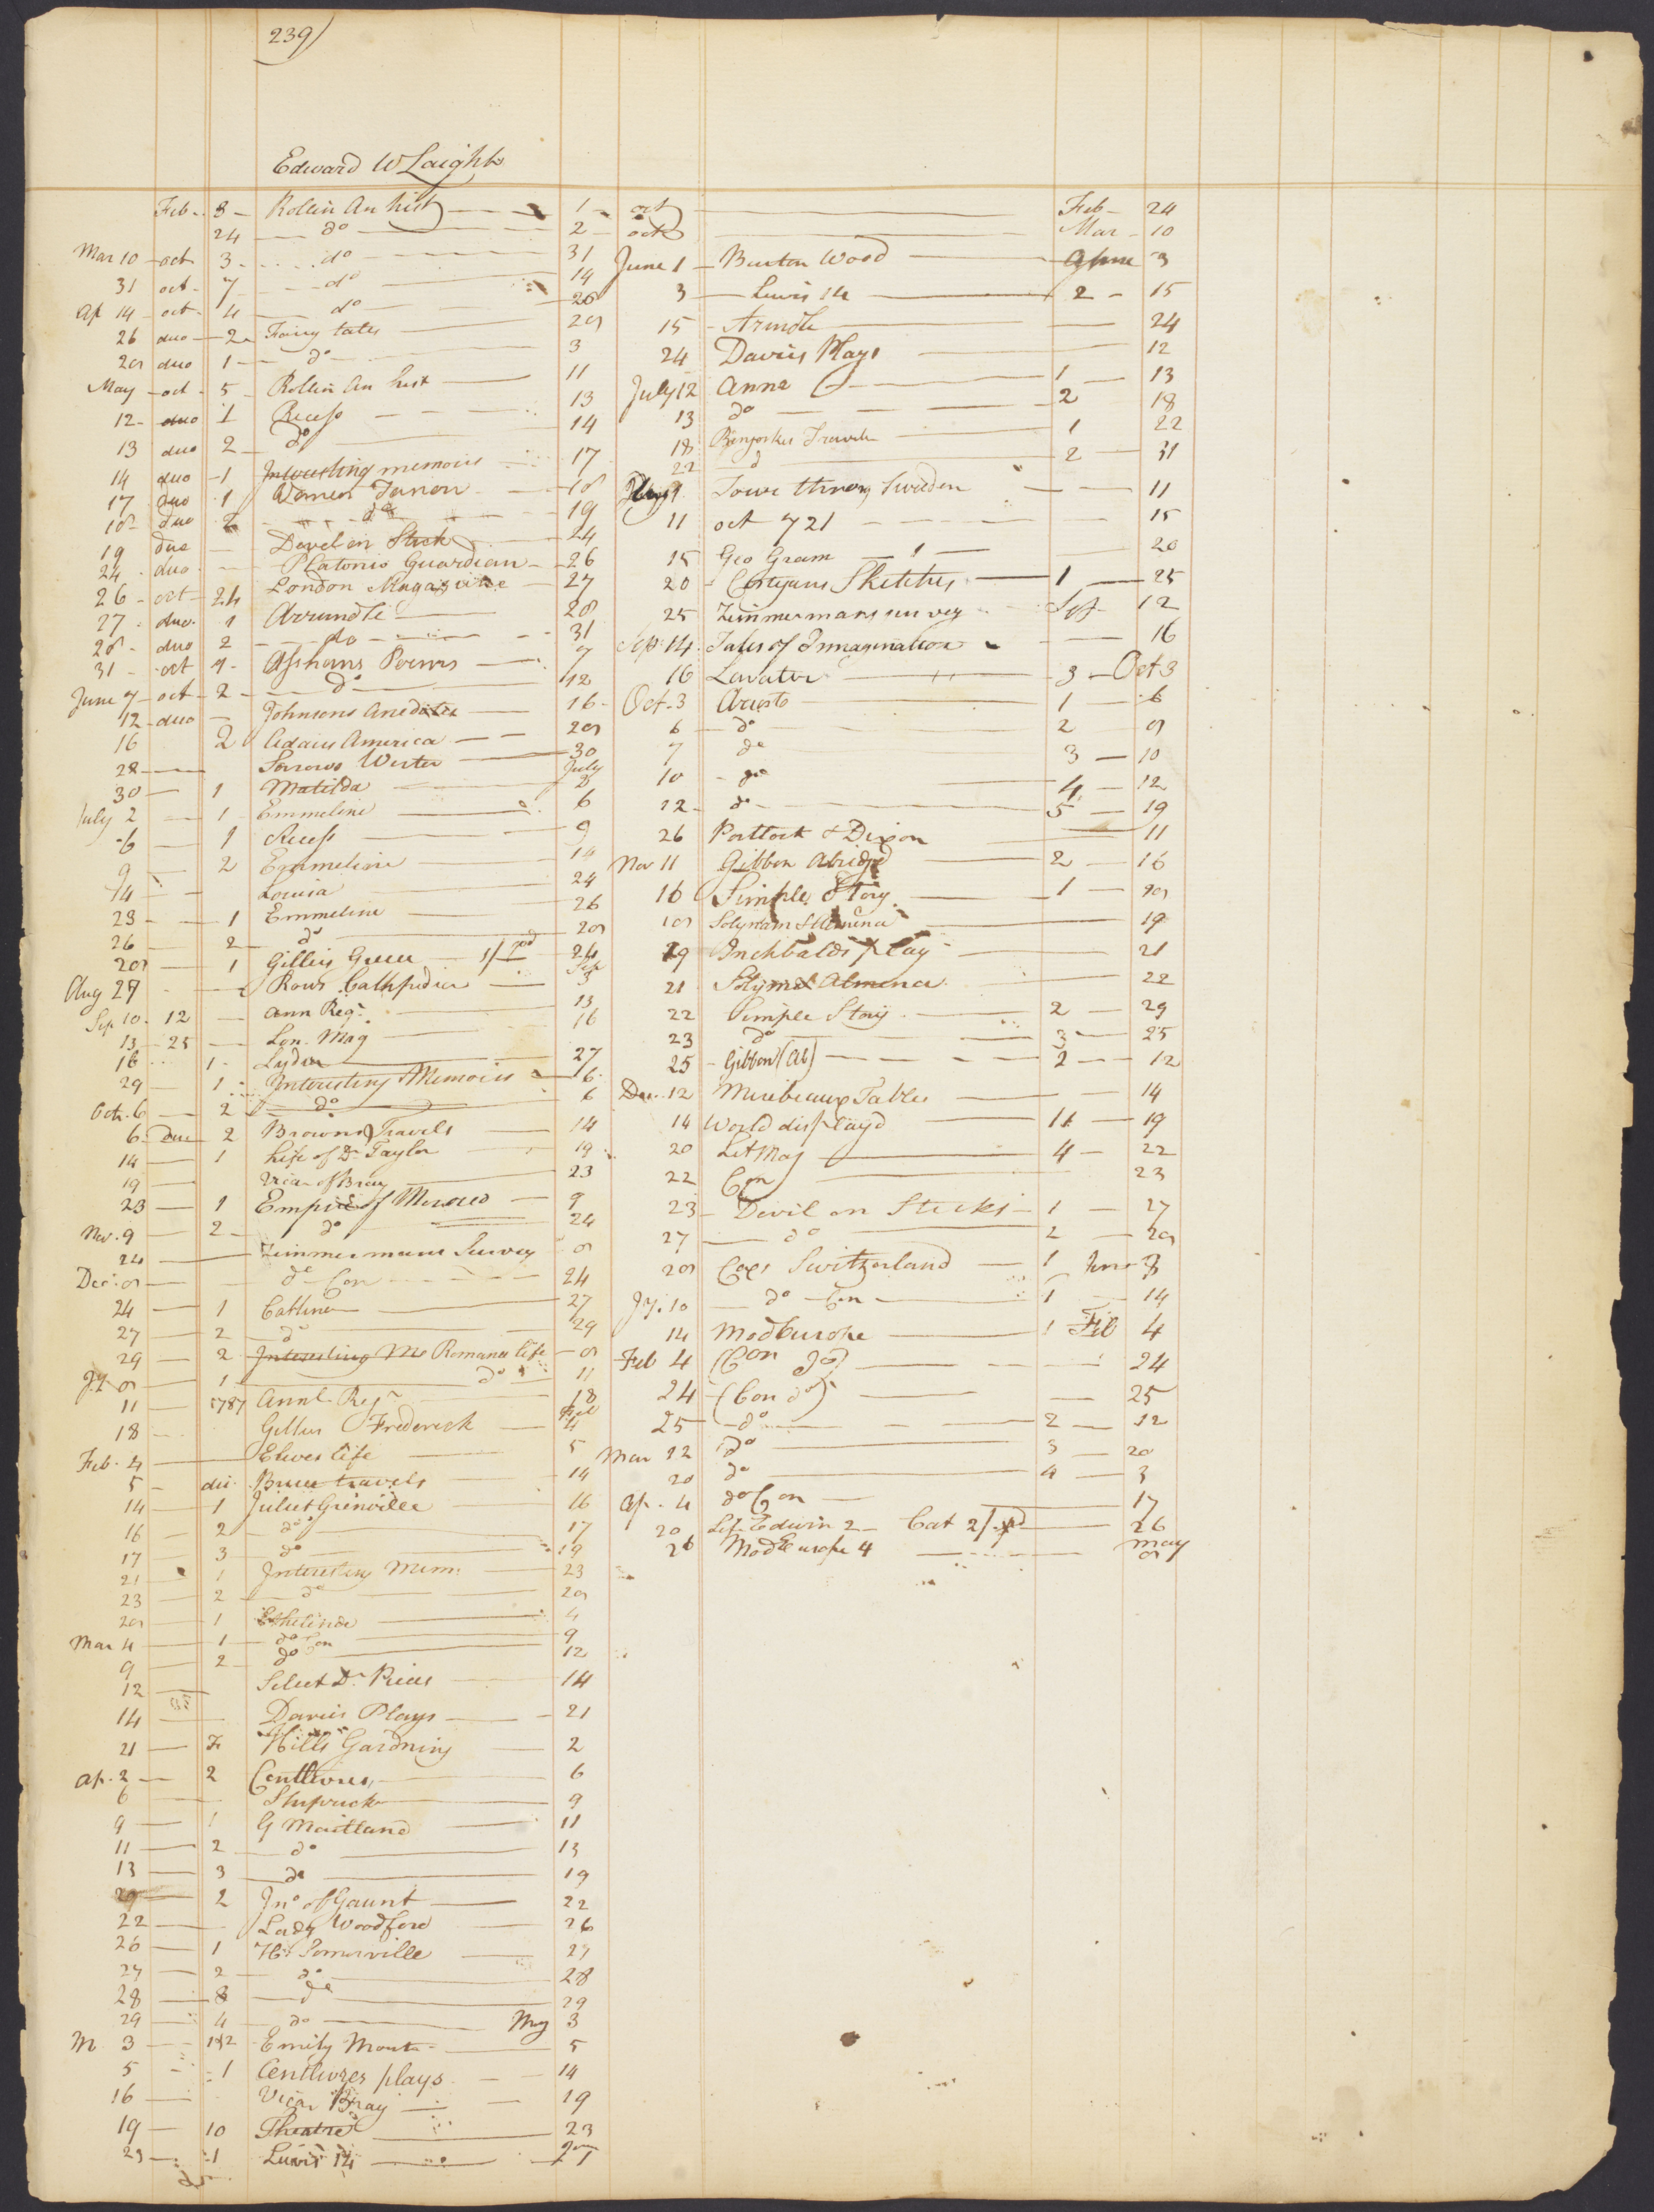 239)
Edward W Laight
Feb - 3 - Rollin An hist 1
24 do 2
Mar 10 oct 3 do 31
31 oct 7 do 14
Ap 14 oct 4 do 26
26 duo 2 Fairy tales 29
29 duo 1 do 3
May oct 5 Rollin An hist 11
12 duo 1 Recess 13
13 duo 2 do 14
14 duo 1 Interesting memoirs 17
17 duo 1 18
18 duo 2 do 19
19 duo Devel on Stick 24
24 duo Platonic Guardian 26
26 oct 24 London Magazine 27
27 duo 1 Arrundle 28
28 duo 2 do 31
31 oct Poems 7
June 7 oct 2 do 12
12 duo Johnsons Anecdotes 16
16 2 Adairs America 29
28 Sorrows Werter 30
30 1 Matilda July 2
July 2 1 Emmeline 6
6 1 Recess 9
9 2 Emmeline 14
14 Louisa 24
23 1 Emmeline 26
26 2 do 29
29 1 Gillies Greece 24
Aug 27 Rows Sep 3
Sep 10 12 Ann Reg 13
13 25 Lon. Mag 16
16 1 27
29 1 Interesting Memoirs 6
Oct. 6 2 do 6
6 Duo 2 Browns Travels 14
14 1 Life of Dr Taylor 19
19 Vicar of Bray 23
23 1 Empire of Morocco 9
Nov. 9 2 do 24
24 Zimmermans Survey 8
Dec 8 do Con 24
24 1 27
27 2 do 29
29 2 Interesting Romance life 8
Jy 8 1 do 11
11 1787 Annl Regr 18
18 Gillies Frederick Feb 4
Feb. 4 Elwes life 5
5 Bruce travels 14
14 1 Juliet Grinville 16
16 2 do 17
17 3 do 19
21 1 Interesting Mem. 23
23 2 do 28
28 1 Ethelinde 4
Mar 4 1 do Con 9
9 2 do 12
12 Select Dr Pieces 14
14 Davies Plays 21
21 Hills Gardning 2
Ap. 2 2 Centlivres 6
6 Shipwreck 9
9 1 G Maitland 11
11 2 do 13
13 3 do 19
2 Jno of Gaunt 22
22 Lady Woodford 26
26 1 Hy Somerville 27
27 2 do 28
28 3 do 29
29 4 do My 3
M 3 1&2 Emily Monta 5
5 1 Centlivres plays 14
16 Vicar Bray 19
19 10 Theatre 23
23 1 Lewis 14
oct Feb 24
oct Mar 10
June 1 Burton Wood 3
3 Lewis 14 2 15
15 Arundle 24
24 Davies Plays 12
July 12 Anna 1 13
13 do 2 18
18 Travels 1 22
22 d 2 31
Aug 1 Towr throug Sweden 11
11 oct 721 15
15 Geo Gram 1 20
20 Sketches 1 25
25 Zimmermans survey Sep 12
Sep 14 Tales of Immagination 16
16 Lavater 3 Oct 3
Oct. 3 Ariosto 1 6
6 do 2
7 do 3 10
10 do 4 12
12 do 5 19
26 Portlock & Dixon 11
Nov 11 Gibbon Abridgd 2 16
16 Simple Story 1 18
18 Solyman & Almena 19
19 Inchbalds play 21
21 Solym & Almena 22
22 Simple Story 2 29
23 do 3 25
25 Gibbon (Ab) 2 12
Dec. 12 Mirebeaux Tables 14
14 World displayd 11 19
20 Lit Mag 4 22
22 Con 23
23 Devil on Sticks 1 27
27 do 2 28
28 Coxs Switzerland 1
Jy. 10 do Con 1 14
14 Mod Europe 1 Feb 4
Feb 4 (Con do) 24
24 (Con do) 25
25 do 2 12
Mar 12 do 3 20
20 do 4 3
Ap. 4 do Con 17
20 Edwin 2 Cat 26
26 Mod Europe 4 may 8